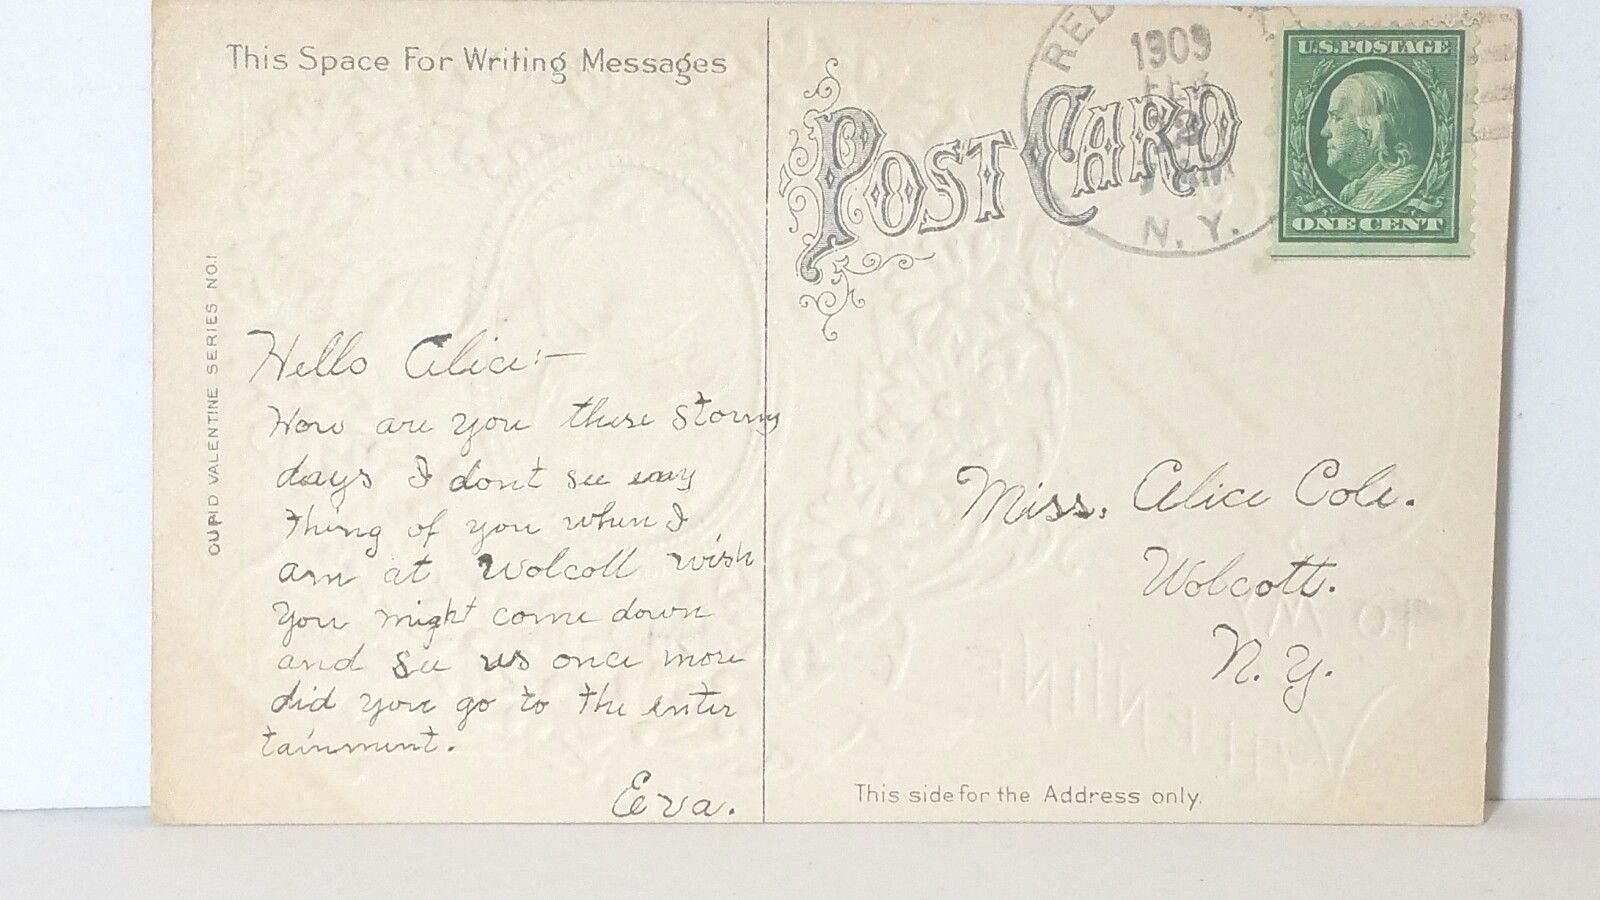 This Space For Writing Messages
CUPID VALENTINE SERIES NO.1
Hello Alice:-
How are you these stormy
days I don't see any
thing of you when I
am at Wolcott wish
you might come down
and see us once more
did you go to the enter
tainment.
Eva.
POST CARD
RED
1909
FEB
N. Y.
U.S. POSTAGE
ONE CENT
Miss. Alice Cole.
Wolcott.
N. Y.
TO MY
VALENTINE
This side for the Address only.